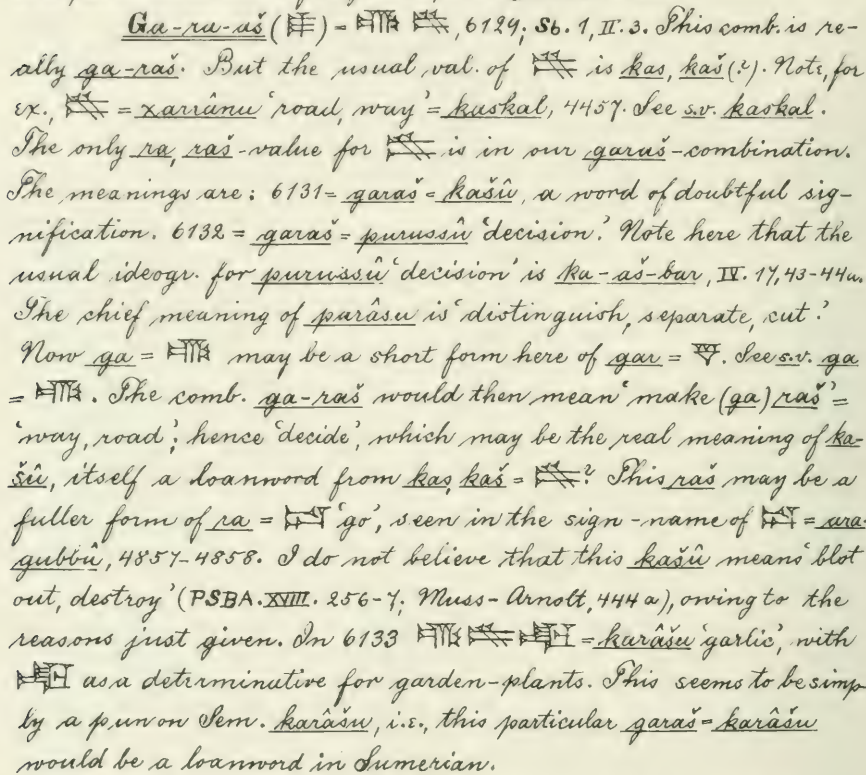 Ga-ra-aš (𒀾) = 𒂵 𒆜, 6129; Sb. 1, II. 3. This comb. is re-
ally ga-raš. But the usual val. of 𒆜 is kas, kaš (?). Note, for
ex., 𒆜 = xarrânu 'road, way' = kaskal, 4457. See s.v. kaskal.
The only ra, raš-value for 𒆜 is in our garaš-combination.
The meanings are: 6131 = garaš = kašû, a word of doubtful sig-
nification. 6132 = garaš = purussû 'decision.' Note here that the
usual ideogr. for purussû 'decision' is ka-aš-bar, IV. 17, 43-44a.
The chief meaning of parâsu is 'distinguish, separate, cut.'
Now ga = 𒂵 may be a short form here of gar = 𒃻. See s.v. ga
= 𒂵. The comb. ga-raš would then mean 'make (ga) raš' =
'way, road'; hence 'decide', which may be the real meaning of ka-
šû, itself a loanword from kas, kaš = 𒆜? This raš may be a
fuller form of ra = 𒁺 'go', seen in the sign-name of 𒁺 = ara-
gubbû, 4857-4858. I do not believe that this kašû means 'blot
out, destroy' (PSBA. XVIII. 256-7; Muss-Arnolt, 444a), owing to the
reasons just given. In 6133 𒂵 𒆜 𒊬 = karâšu 'garlic', with
𒊬 as a determinative for garden-plants. This seems to be simp-
ly a pun on Sem. karâšu, i.e., this particular garaš = karâšu
would be a loanword in Sumerian.